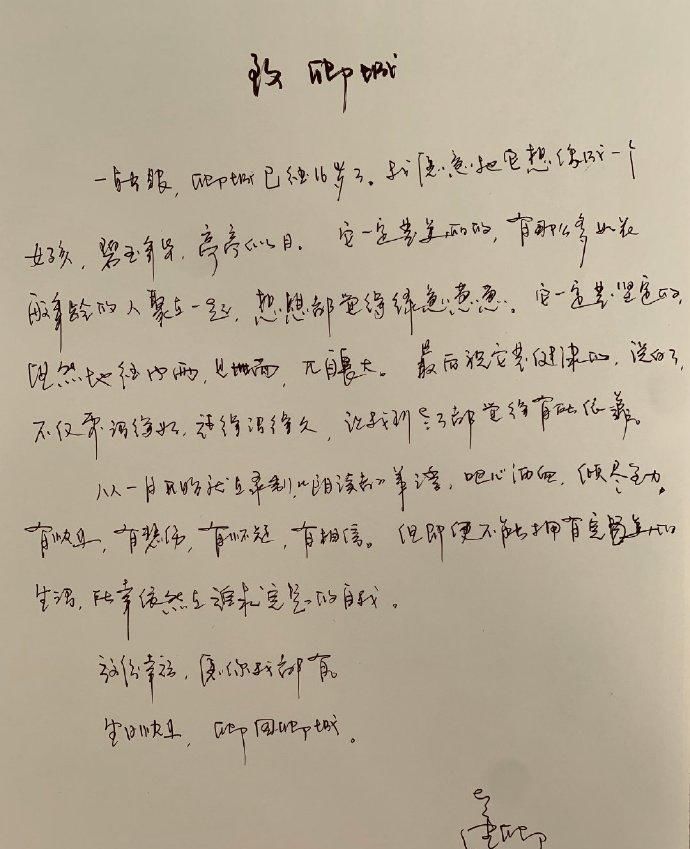 致 卿城
一转眼，卿城已经16岁了。我愿意把它想像成一个
女孩，碧玉年华，亭亭似月。它一定是美丽的，有那么多如花
般年龄的人聚在一起，想想都觉得绿意葱葱。它一定是坚定的，
既然 经 风雨，见 世面，方自长大。最后 祝它是健康的，说白了，
不仅要活得好，还得活得久，让我到 老了都觉得有所依靠。
从一月开始就在录制《朗读者》第 季，呕心沥血，倾尽全力。
有快乐，有悲伤，有怀疑，有相信。但即便不能拥有完美的
生活，所幸依然在追求完整的自我。
这份幸福，愿你我都有。
生日快乐，卿 卿城。
董卿